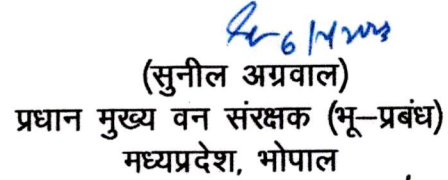 6/4/2023
(सुनील अग्रवाल)
प्रधान मुख्य वन संरक्षक (भू–प्रबंध)
मध्यप्रदेश, भोपाल